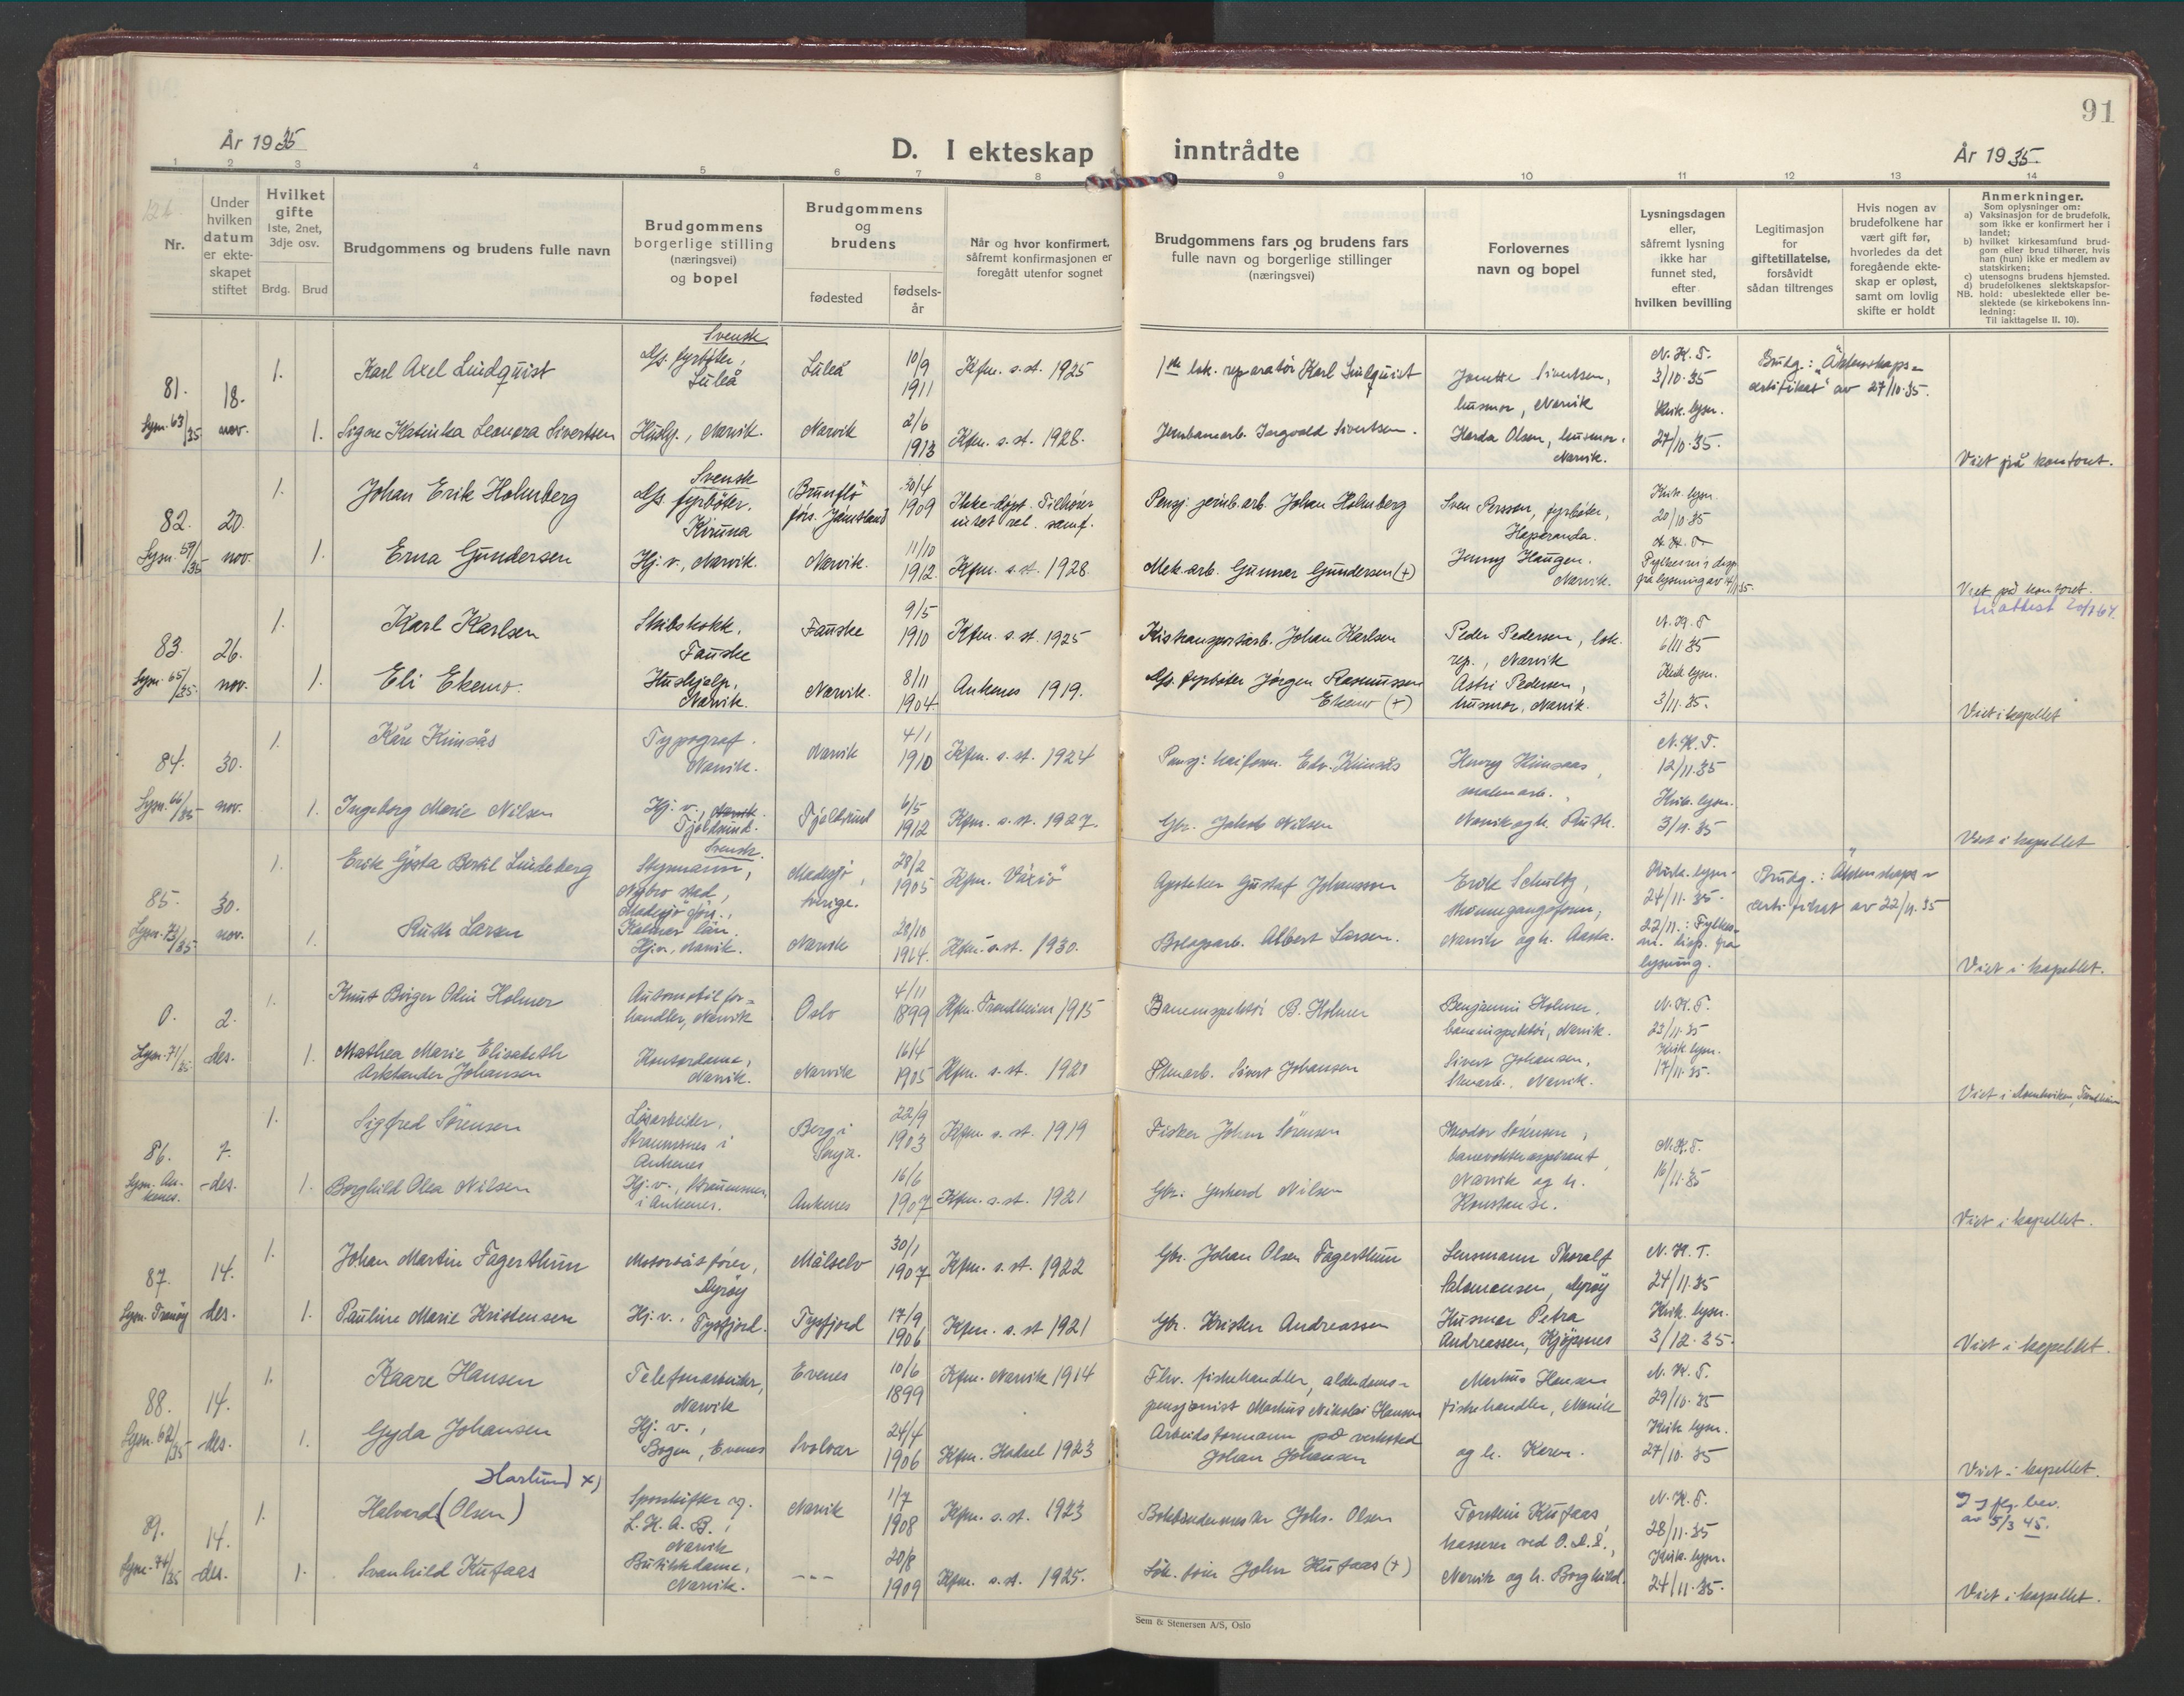 91
År 1935
D. I ekteskap inntrådte
År 1935.
1 2 3 4 5 6 7 8 9 10 11 12 13 14
Nr.
Under hvilken datum er ekteskapet stiftet
Hvilket gifte
1ste, 2net, 3dje osv.
Brdg. Brud
Brudgommens og brudens fulle navn
Brudgommens borgerlige stilling (næringsvei) og bopel
Brudgommens og brudens
fødested
fødselsår
Når og hvor konfirmert, såfremt konfirmasjonen er foregått utenfor sognet
Brudgommens fars og brudens fars fulle navn og borgerlige stillinger (næringsvei)
Forlovernes navn og bopel
Lysningsdagen eller, såfremt lysning ikke har funnet sted, efter hvilken bevilling
Legitimasjon for giftetillatelse, forsåvidt sådan tiltrenges
Hvis nogen av brudefolkene har vært gift før, hvorledes da det foregående ekteskap er opløst, samt om lovlig skifte er holdt
Anmerkninger.
Som oplysninger om:
a) Vaksinasjon for de brudefolk, som ikke er konfirmert her i landet;
b) hvilket kirkesamfund brudgom eller brud tilhører, hvis han (hun) ikke er medlem av statskirken;
c) utensogns brudens hjemsted.
d) brudefolkenes slektskapsforhold: ubeslektede eller beslektede (se kirkebokens innledning:
NB.
Til iakttagelse II. 10).
81. 18. nov.
Lysn. 63/35
1. Karl Axel Lindquist
Svensk
fyrbøter, Luleå
Luleå
10/9 1911
Kfm. s. st. 1925
lok. reparatør Karl Lindquist
Jonette Sivertsen, husmor, Narvik
N.K.T. 3/10.35
Brudg.: "Äktenskapscertifikat" av 27/10.35.
1. Signe Katinka Leonora Sivertsen
Narvik.
Narvik
2/6 1913
Kfm. s. st. 1928.
Jernbanearb. Ingvald Sivertsen.
Harda Olsen, husmor, Narvik.
Kirk. lysn. 27/10.35.
Viet på kontoret.
82. 20. nov.
Lysn. 59/35
1. Johan Erik Holmberg
Svensk
fyrbøter. Kiruna
Brunflo förs. Jämtland
30/4 1909
Ikke døpt. Tilhører intet rel. samf.
Pensj. jernb.arb. Johan Holmberg
Sven Persson, fyrbøter, Haparanda.
Kirk. lysn. 20/10 35
N.K.T.
1. Erna Gundersen
Hj. v., Narvik.
Narvik.
11/10 1912.
Kfm. s. st. 1928.
Mek. arb. Gunnar Gundersen (+)
Jenny Haugen. Narvik.
Fylkesm's disp. fra lysning av 14/11 35.
Viet på kontoret.
83. 26. nov.
Lysn. 65/35.
1. Karl Karlsen
Skibskokk, Fauske
Fauske
9/5 1910
Kfm. s. st. 1925
Johan Karlsen
Peder Pedersen, lok. rep., Narvik
N.K.T 6/11 35
1. Eli Ekemo.
Hushjelp, Narvik.
Narvik.
8/11 1904.
Ankenes 1919.
fyrbøter Jørgen Rasmussen Ekemo (+)
Astri Pedersen, husmor, Narvik.
Kirk. lysn. 3/11.35.
Viet i kapellet
84. 30. nov.
Lysn. 66/35
1. Kåre Kimsås
Typograf. Narvik.
Narvik
4/1 1910
Kfm. s. st. 1924
Pensj. Edv. Kimsås
Henry Kimsaas, malmarb., Narvik og h. Ruth.
N.K.T. 12/11.35
1. Ingeborg Marie Nilsen
Hj. v., Narvik. Tjeldsund.
Tjeldsund
6/5 1912
Kfm. s. st. 1927.
Gbr. Jakob Nilsen
Kirk. lysn. 3/11.35
Viet i kapellet
85. 30. nov.
Lysn. 73/35
1. Erik Gösta Bertil Lindeberg
Svensk.
Styrmann, Nybro stad, Madesjö förs., Kalmar län.
Madesjö, Sverige.
28/2 1905
Kfm. Växiö
Apoteker Gustaf Johansson
Erik Schultz, skinnegangsform., Narvik og h. Aasta.
Kirk. lysn. 24/11.35.
Brudg.: Äktenskapscertifikat av 22/11.35
1. Ruth Larsen
Hj. v., Narvik.
Narvik
28/10 1914.
Kfm. s. st. 1930.
Bolagsarb. Albert Larsen.
22/11.: Fylkesm. disp. fra lysning.
Viet i kapellet.
0. 2. des.
Lysn. 71/35
1. Knut Birger Odin Holmer
Automobilforhandler, Narvik
Oslo
4/11 1899
Kfm. Trondheim 1915
Baneinspektør B. Holmer
Benjamin Holmer, baneinspektør, Narvik.
N.K.T. 23/11.35
1. Mathea Marie Elisabeth Arktander Johansen
Kontordame, Narvik.
Narvik
16/4 1905
Kfm. s. st. 1920
Sivert Johansen
Sivert Johansen, Narvik.
Kirk. lysn. 17/11.35.
Viet i Domkirken, Trondheim
86. 7. des.
Lysn. Ankenes.
1. Sigfred Sørensen
Løsarbeider, Straumsnes i Ankenes
Berg i Senja.
22/9 1903
Kfm. s. st. 1919
Fisker Johan Sørensen
Teodor Sørensen, banevokteraspirant, Narvik og h. Konstanse.
N.K.T. 16/11.35
1. Borghild Olea Nilsen
Hj. v., Straumsnes i Ankenes.
Ankenes
16/6 1907
Kfm. s. st. 1921
Gbr. Gerhard Nilsen
Viet i kapellet.
87. 14. des.
Lysn. Tranøy
1. Johan Martin Fagerthun
Motorbåtfører, Dyrøy
Målselv
30/1 1907
Kfm. s. st. 1922
Gbr. Johan Olsen Fagerthun
Lensmann Thoralf Salomonsen, Dyrøy
N.K.T. 24/11.35
1. Pauline Marie Kristensen
Hj. v., Tysfjord.
Tysfjord
17/9 1906
Kfm. s. st 1921
Gbr. Kristen Andreassen
Husmor Petra Andreassen, Kjøpsnes
Kirk. lysn. 3/12.35.
Viet i kapellet.
88. 14. des.
Lysn. 62/35
1. Kaare Hansen
Telefonarbeider, Narvik
Evenes
10/6 1899
Kfm. Narvik 1914
Fhv. fiskehandler, alderdomspensjonist Markus Nikolai Hansen
Markus Hansen fiskehandler, Narvik og h. Karen.
N.K.T. 29/10.35
1. Gyda Johansen
Hj. v., Bogen, Evenes
Svolvær
24/4 1906
Kfm. Hadsel 1923
Arbeidsformann på verksted Johan Johansen
Kirk lysn. 27/10.35
Viet i kapellet.
89. 14. des.
Lysn. 74/35
1. Halvard (Olsen) Harlund x)
Sporskifter v. L.K.A.B., Narvik
Narvik
1/7 1908
Kfm. s. st. 1923
Bokbindermester Johs. Olsen
Torstein Kufaas, kasserer ved O.A.S., Narvik og h. Borghild.
N.K.T. 28/11.35
x) flg. bev. av 5/3 45.
1. Svanhild Kufaas
Butikkdame, Narvik.
- - -
20/8 1909
Kfm. s. st. 1925.
Lok. fører John Kufaas (+)
Kirk. lysn. 24/11.35.
Viet i kapellet.
Sem & Stenersen A/S, Oslo